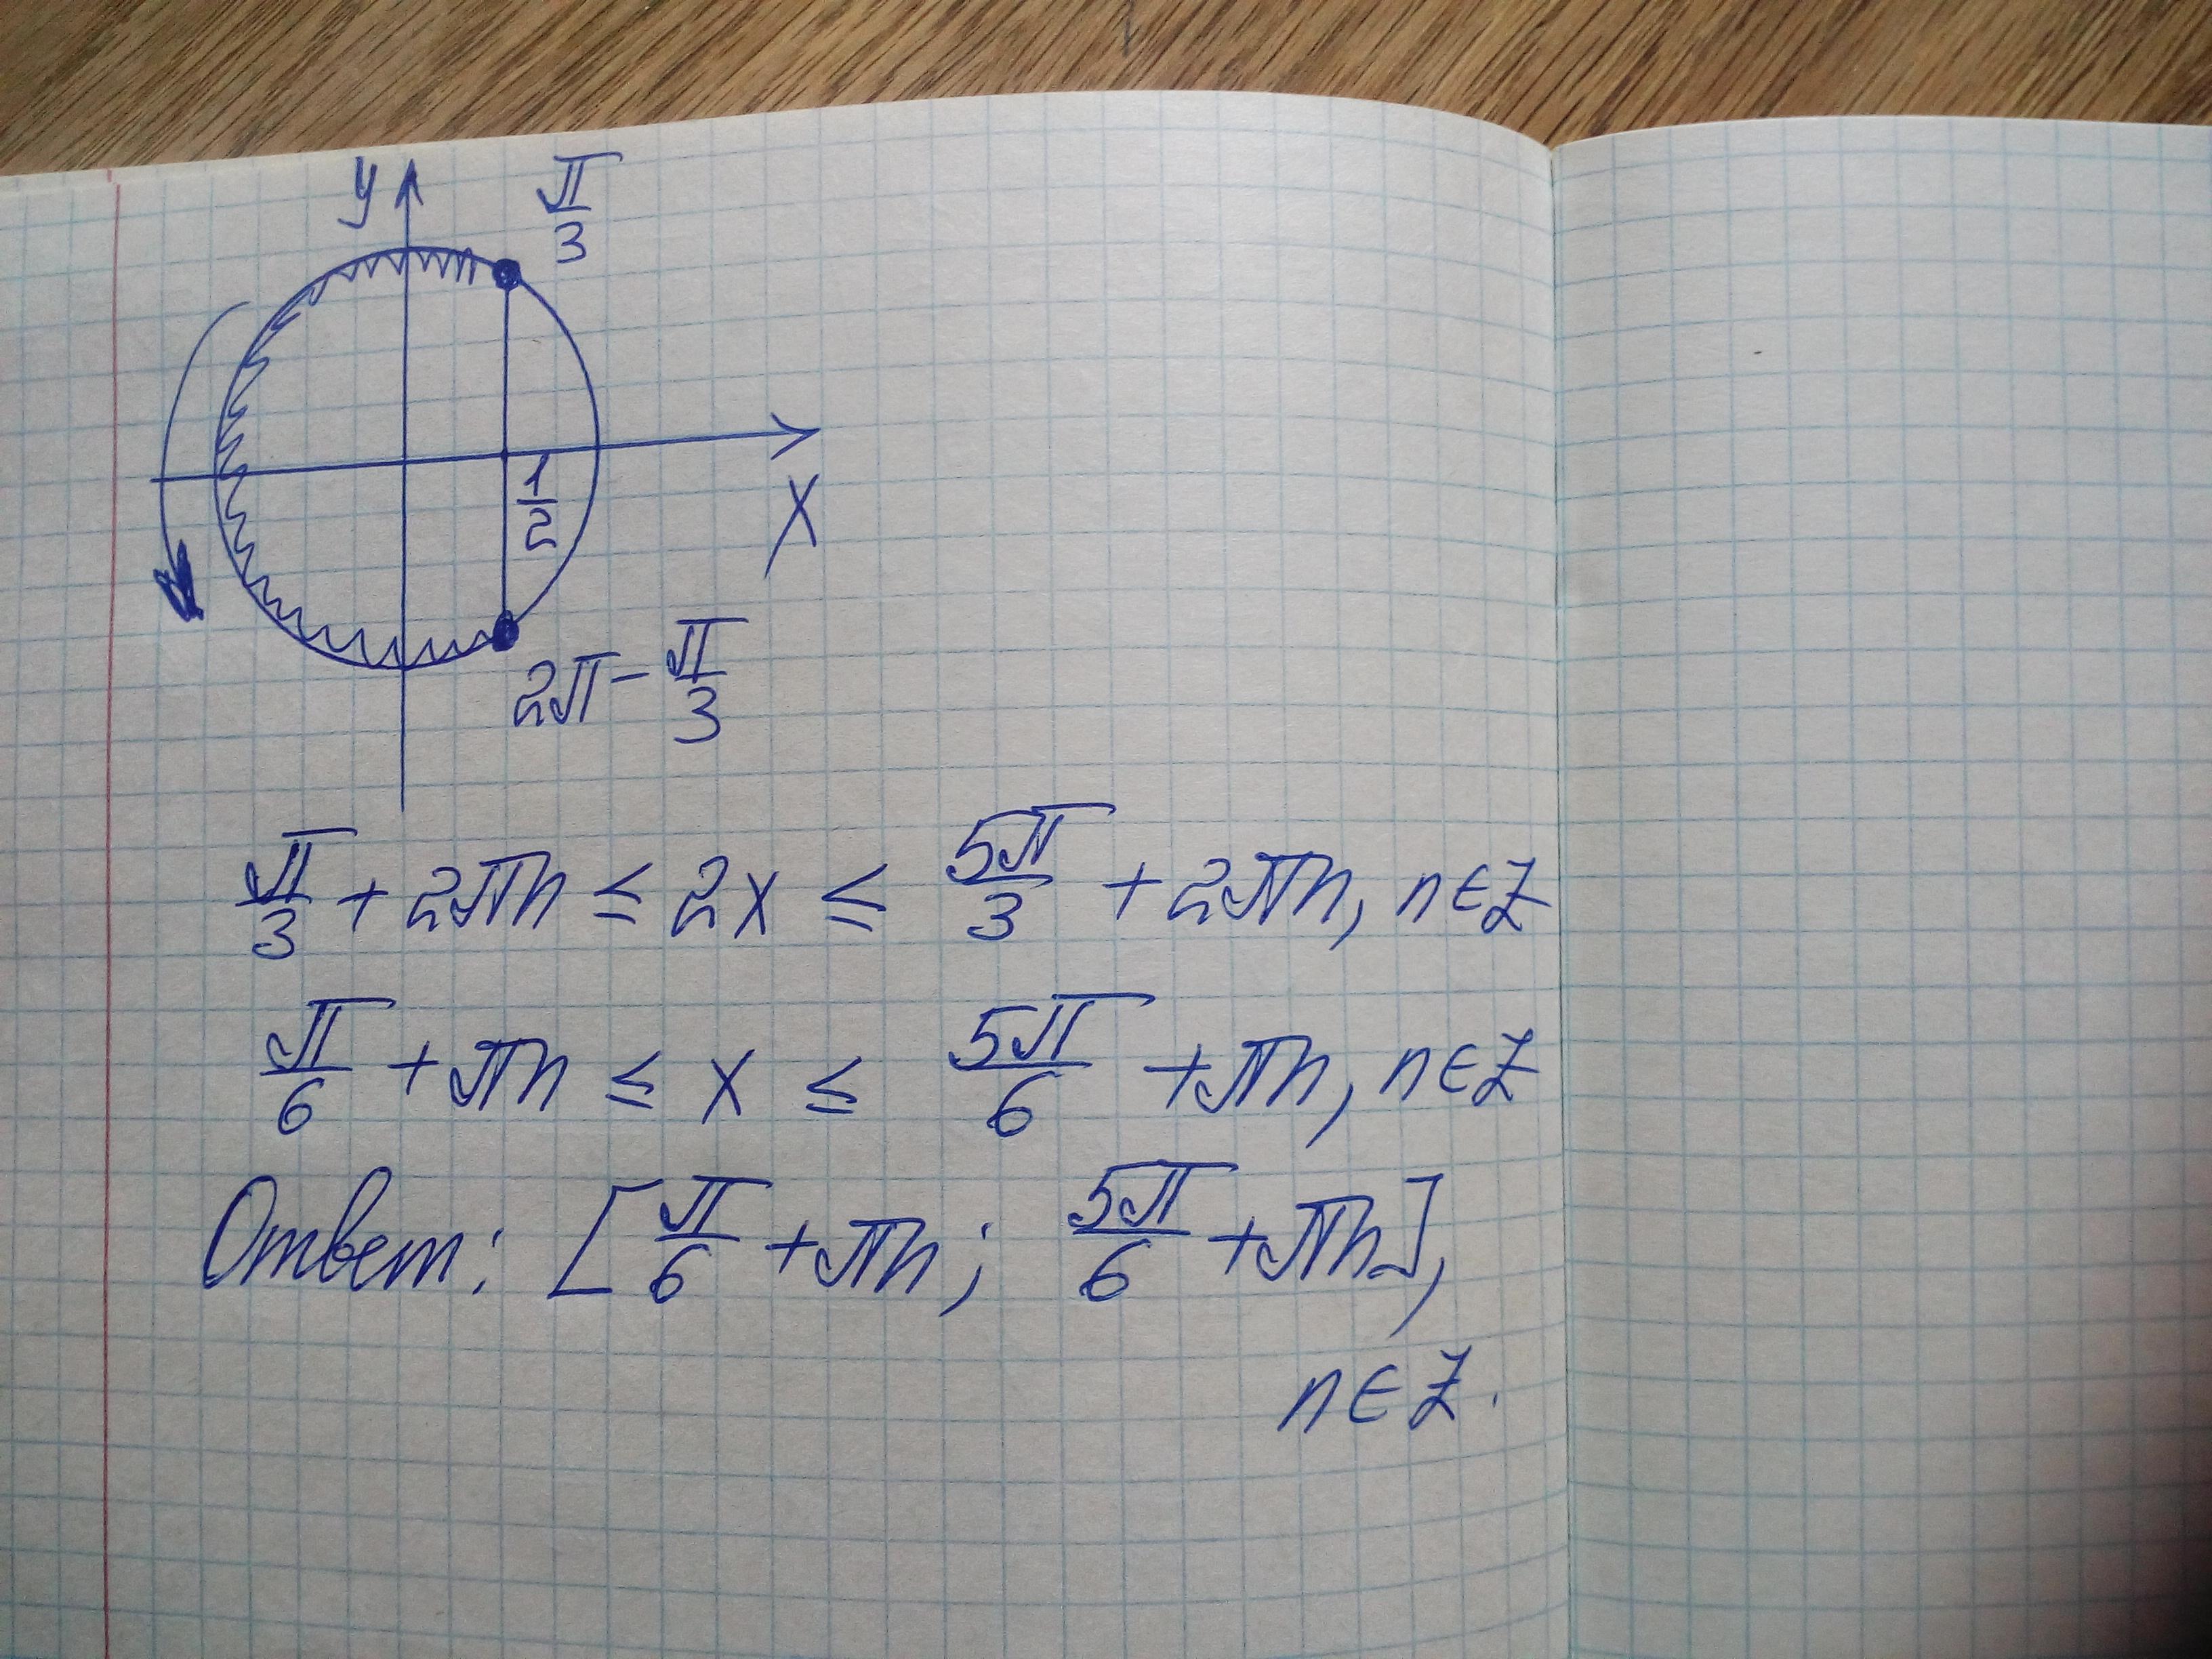 y
π/3
1/2
x
2π - π/3
π/3 + 2πn ≤ 2x ≤ 5π/3 + 2πn, n∈Z
π/6 + πn ≤ x ≤ 5π/6 + πn, n∈Z
Ответ: [π/6 + πn; 5π/6 + πn],
n∈Z.